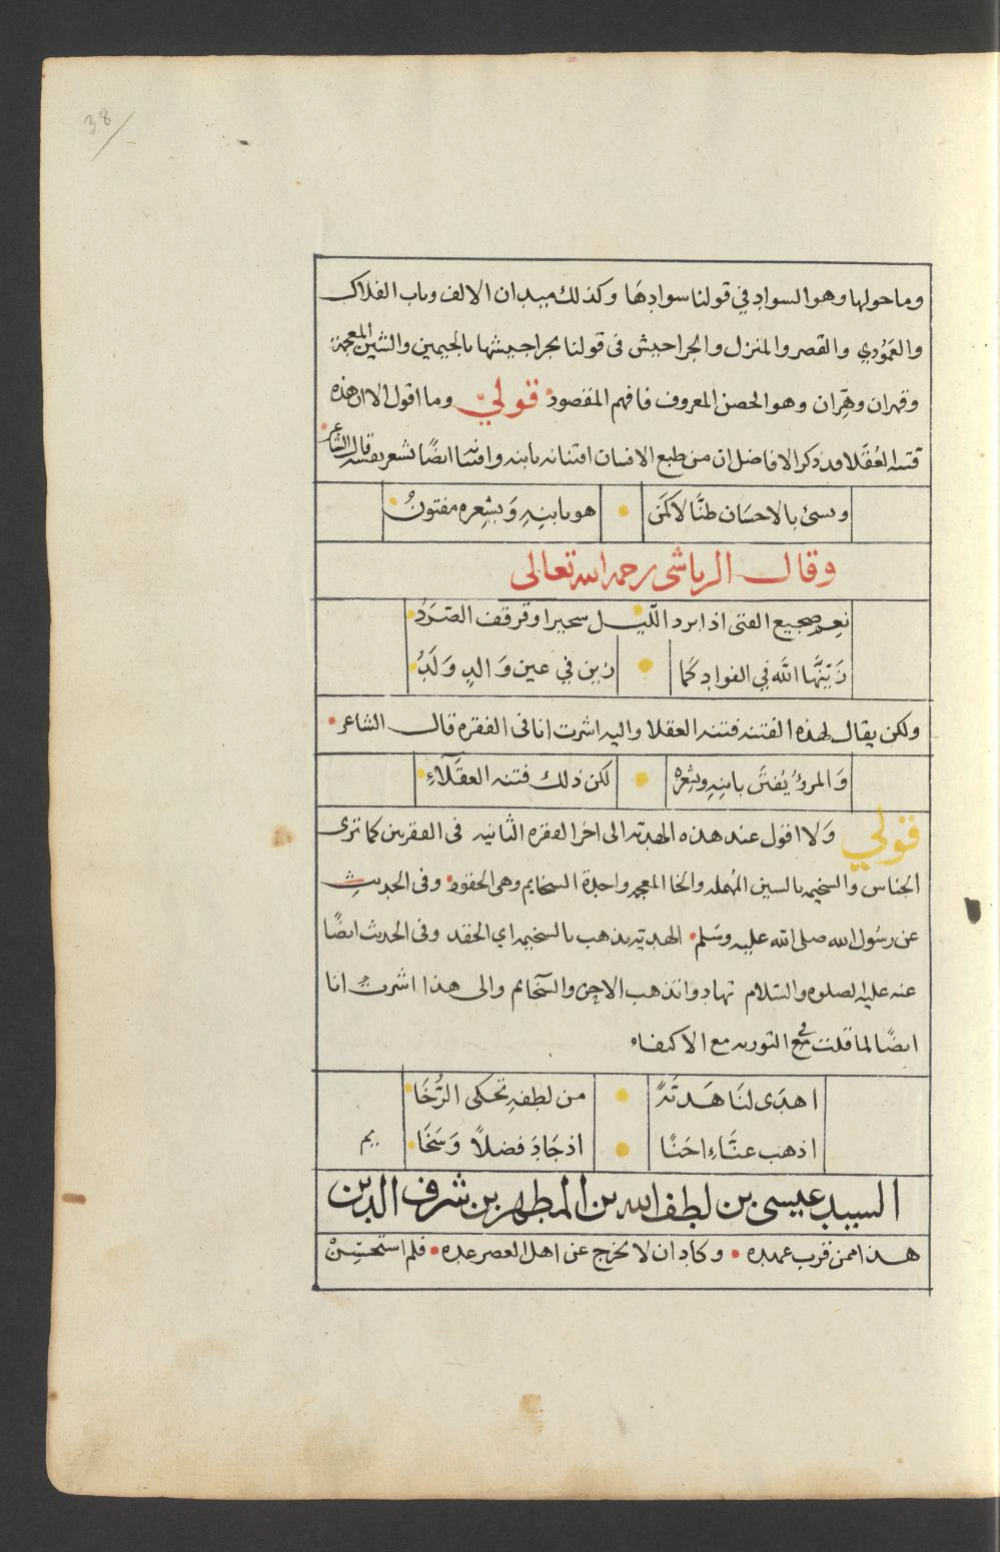 38
وما حولها وهو السواد في قولنا سوادها وكذلك ميدان الالف وباب الفلاك
والعمودي والقصر والمنزل والجراجيش في قولنا بحراجيشها بالجيمين والشين المعجمة
وقهران وهران وهو الحصن المعروف فافهم المقصود قولي وما اقول الا ان هذه
فتنه العقلا قد ذكر الافاضل ان من طبع الانسان افتنانه بابنه وافتنانه ايضًا بشعر نفسه قال الشاعر
ويسئ بالاحسان ظنًّا لا كمن • هو بابنهِ وَبشِعره مفتونُ
وقال الرياشى رحمه الله تعالى
نعم ضجيع الفتى اذا برد الليل سحيرا وقرقف الصَّرَدُ
زَيَّنَهَا اللّه في الفواد كما • زين في عين وَالدٍ وَلَدُ
ولكن يقال لهذه الفتنه فتنه العقلا واليه اشرت انا فى الفقره قال الشاعر
وَالمرؤُ يُفتَن بابنِهِ وشِعرِه • لكن ذلك فتنه العقَلآءِ
قولي وَلا اقول عند هذه الهديه الى اخر الفقره الثانيه فى الفقرتين كما ترى
الجناس والسخيمه بالسين المُهمله والخا المعجمه واحدة السخايم وهى الحقود وفى الحديث
عن رسُول الله صلى الله عليه وسَلم الهديّه تذهب بالسخيمه اي الحقد وفى الحديث ايضًا
عنه عليه الصلوه والسَّلام تهادوا تذهب الاحن والسَّخايم والى هذا اشرت انا
ايضًا لما قلت مع التوريه مع الاكتفاء
اهدَى لنَا هَديَّةً • من لطفهِ تحكى الرُّخَا
اذهب عنَّاءِ احَنًا • اذ جَادَ فضلاً وَسَخَا يم
السيد عيسى بن لطف الله بن المطهر بن شرف الدين
هذا ممن قرب عهده • وكاد ان لا يخرج عن اهل العصر عده • فلم استحسِنْ